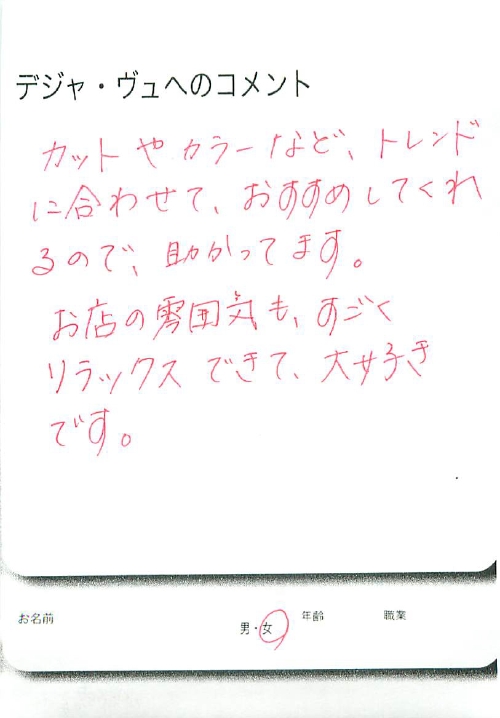 デジャ・ヴュへのコメント
カットやカラーなど、トレンド
に合わせて、おすすめしてくれ
るので、助かってます。
お店の雰囲気も、すごく
リラックスできて、大好き
です。
お名前 男・女 年齢 職業